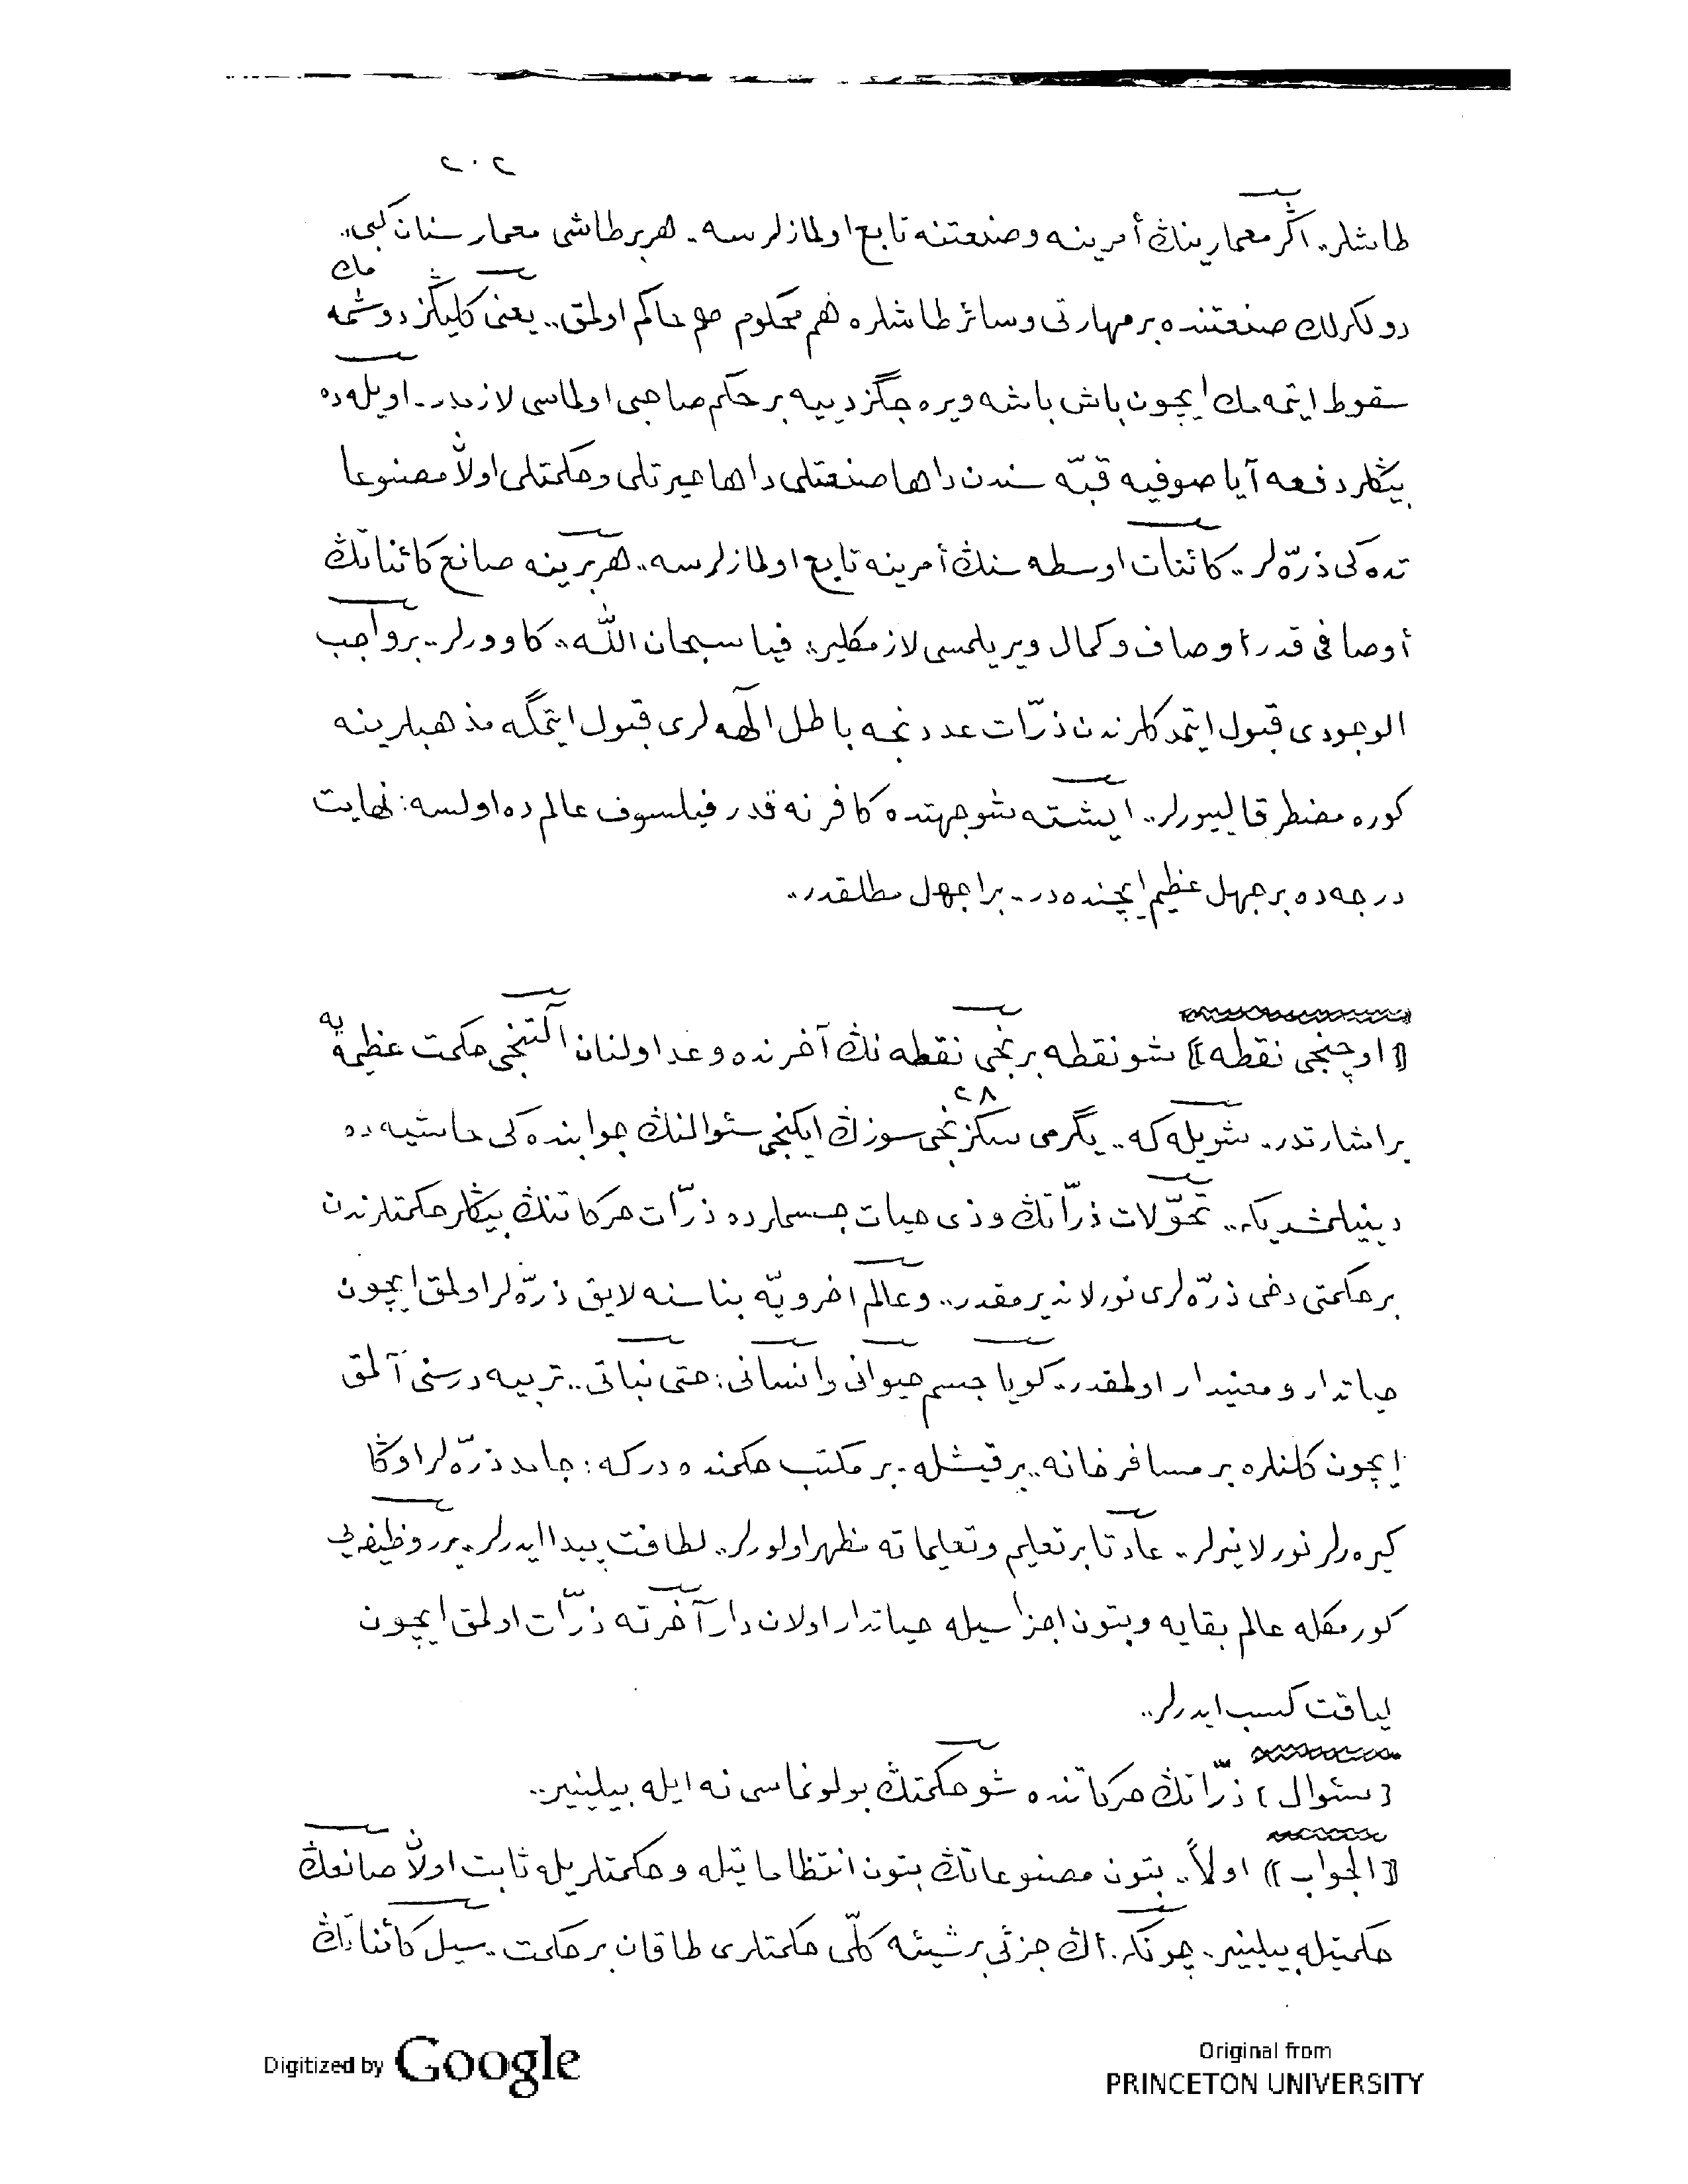 ٢٠٢
طاشلر.. اگر معمارینڭ أمرینه وصنعتنه تابع اولمازلرسه.. هر بر طاشی معمار سنان کبی..
دولکرلك صنعتنده بر مهارتی وسائر طاشلره هم محکوم هم حاکم اولمق.. یعنی کلیڭز دوشمه مك
سقوط ایتمه مك ایچون باش باشه ویره جگز دییه بر حکم صاحبی اولماسی لازمدر.. اویله ده
بیڭلر دفعه آیا صوفیه قبّه سندن داها صنعتلی داها حیرتلی وحکمتلی اولان مصنوعا
تده کی ذرّه لر.. کائنات اوسطه سنڭ أمرینه تابع اولمازلرسه.. هر برینه صانع کائناتڭ
أوصافی قدر أوصاف وکمال ویریلمسی لازمکلیر: فیا سبحان اللّٰه.. کاوورلر.. بر واجب
الوجودی قبول ایتمدکلرندن ذرّات عددنجه باطل الٓهه لری قبول ایتمگه مذهبلرینه
کوره مضطر قالییورلر.. ایشته شو جهتده کافر نه قدر فیلسوف عالم ده اولسه: نهایت
درجه ده بر جهل عظیم ایچنده در.. بر اجهل مطلقدر..
⟦اوچنجی نقطه⟧ شو نقطه برنجی نقطه نڭ آخرنده وعد اولنان آلتنجی حکمت عظیمه یه
بر اشارتدر.. شویله که.. یگرمی سکزنجی ٢٨ سوزڭ ایکنجی سئوالنڭ جوابنده کی حاشیه ده
دینیلمشدیکه.. تحوّلات ذرّاتڭ وذی حیات جسملرده ذرّات حرکاتنڭ بیڭلر حکمتلرندن
بر حکمتی دخی ذرّه لری نورلاندیرمقدر.. وعالم اخرویّه بناسنه لایق ذرّه لر اولمق ایچون
حیاتدار و معنیدار اولمقدر.. کویا جسم حیوانی وانسانی: حتی نباتی.. تربیه درسنی آلمق
ایچون کلنلره بر مسافرخانه.. بر قیشله.. بر مکتب حکمنده درکه: جامد ذرّه لر اوڭا
کیره رلر نورلانیرلر.. عادتا بر تعلیم وتعلیماته مظهر اولورلر.. لطافت پیدا ایدرلر.. بررر وظیفه یی
کورمکله عالم بقایه وبتون اجزاسیله حیاتدار اولان دار آخرته ذرّات اولمق ایچون
لیاقت کسب ایدرلر..
[سئوال] ذرّاتڭ حرکاتنده شو حکمتڭ بولونماسی نه ایله بیلینیر..
⟦الجواب⟧ اولاً.. بتون مصنوعاتڭ بتون انتظاماتیله وحکمتلریله ثابت اولان صانعڭ
حکمتیله بیلینیر.. چونکه.. أڭ جزئی بر شیئه کلّی حکمتلری طاقان بر حکمت.. سیل کائناتڭ
Digitized by Google
Original from
PRINCETON UNIVERSITY